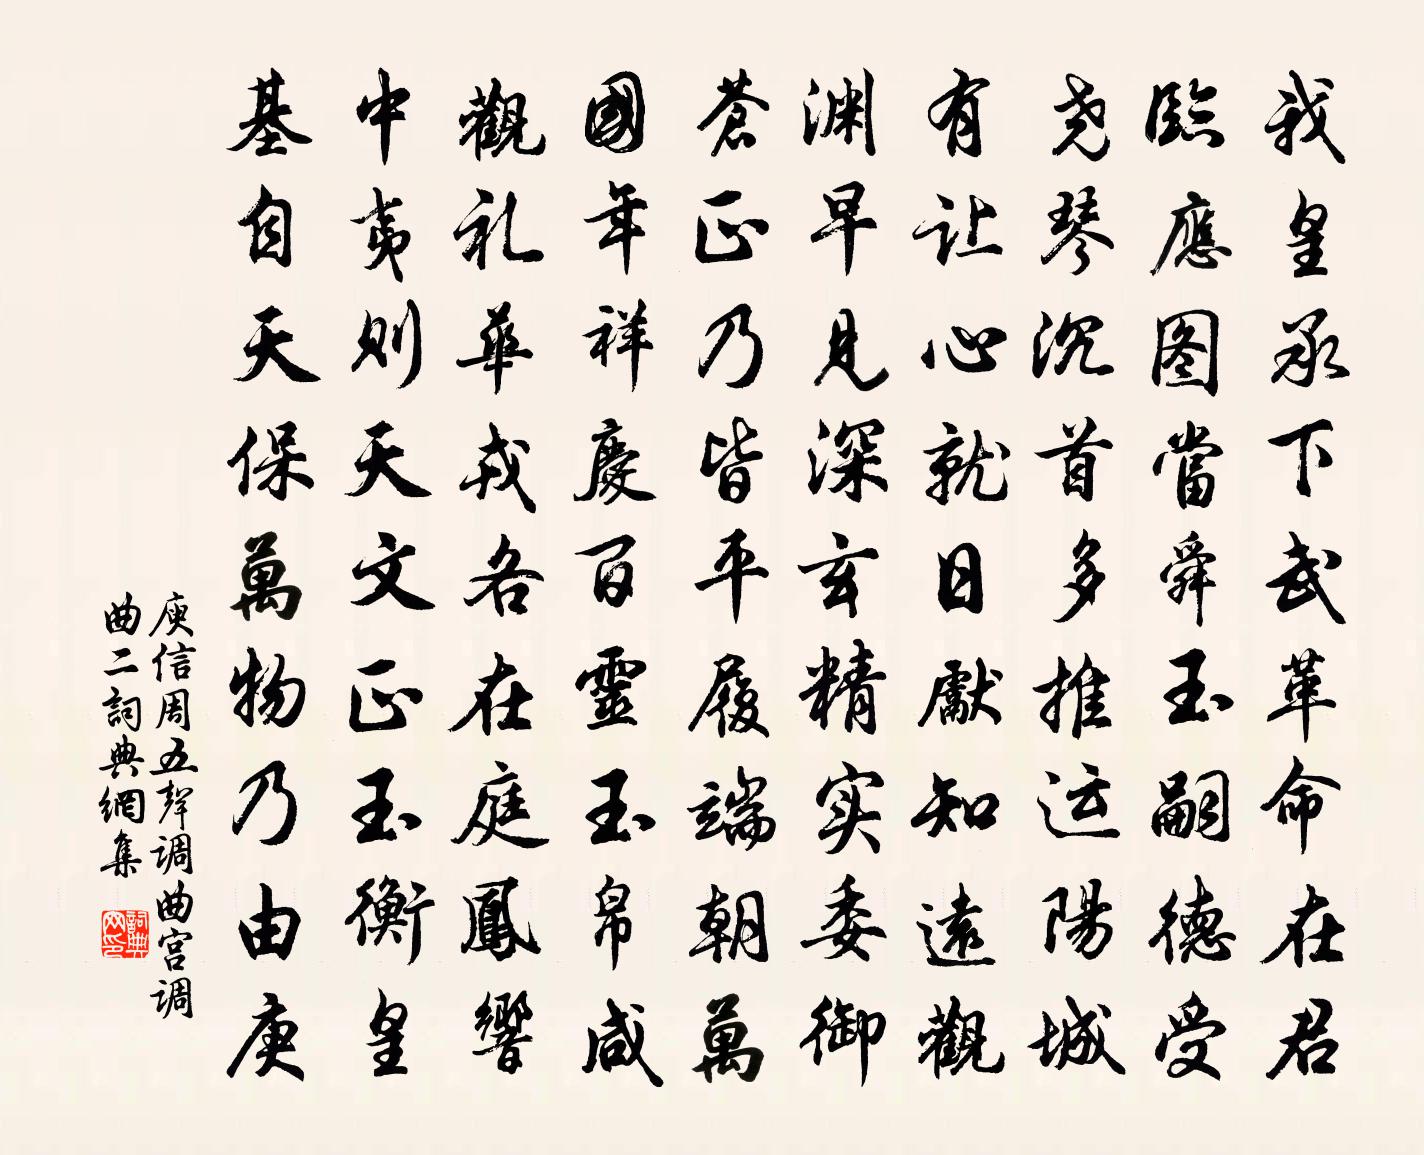 我皇承下武革命在君
臨應图當舜玉嗣德受
尧琴沉首多推运陽城
有让心就日獻知遠觀
渊早見深玄精实委御
蒼正乃皆平履端朝萬
國年祥慶百靈玉帛咸
觀礼華戎各在庭鳳響
中夷則天文正玉衡皇
基自天保萬物乃由庚
庾信周五聲调曲宫调
曲二詞典網集
詞典
网印